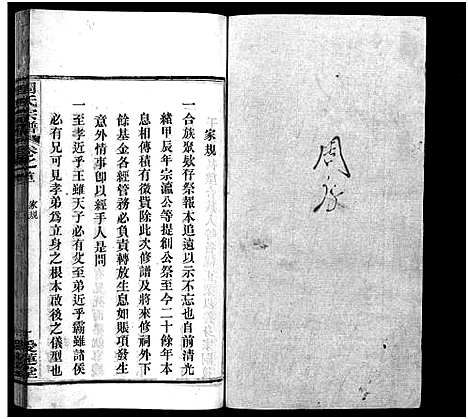 周
家規
一合族歟歟祭報本追遠示不忘也自前清光
緒甲辰年宗瀛公等提創公祭至今二十餘年本
息相傳積有徵費除此次修譜及將來修祠外下
餘基金各經管務必負責轉放生息如賬項發生
意外情事卽以經手人是問
一至孝近乎王雖天子必有父至弟近乎霸雖諸侯
必有兄可見孝弟為立身之根本啟後之儀型也
周氏宗譜
卷之首
家規
一
愛蓮堂